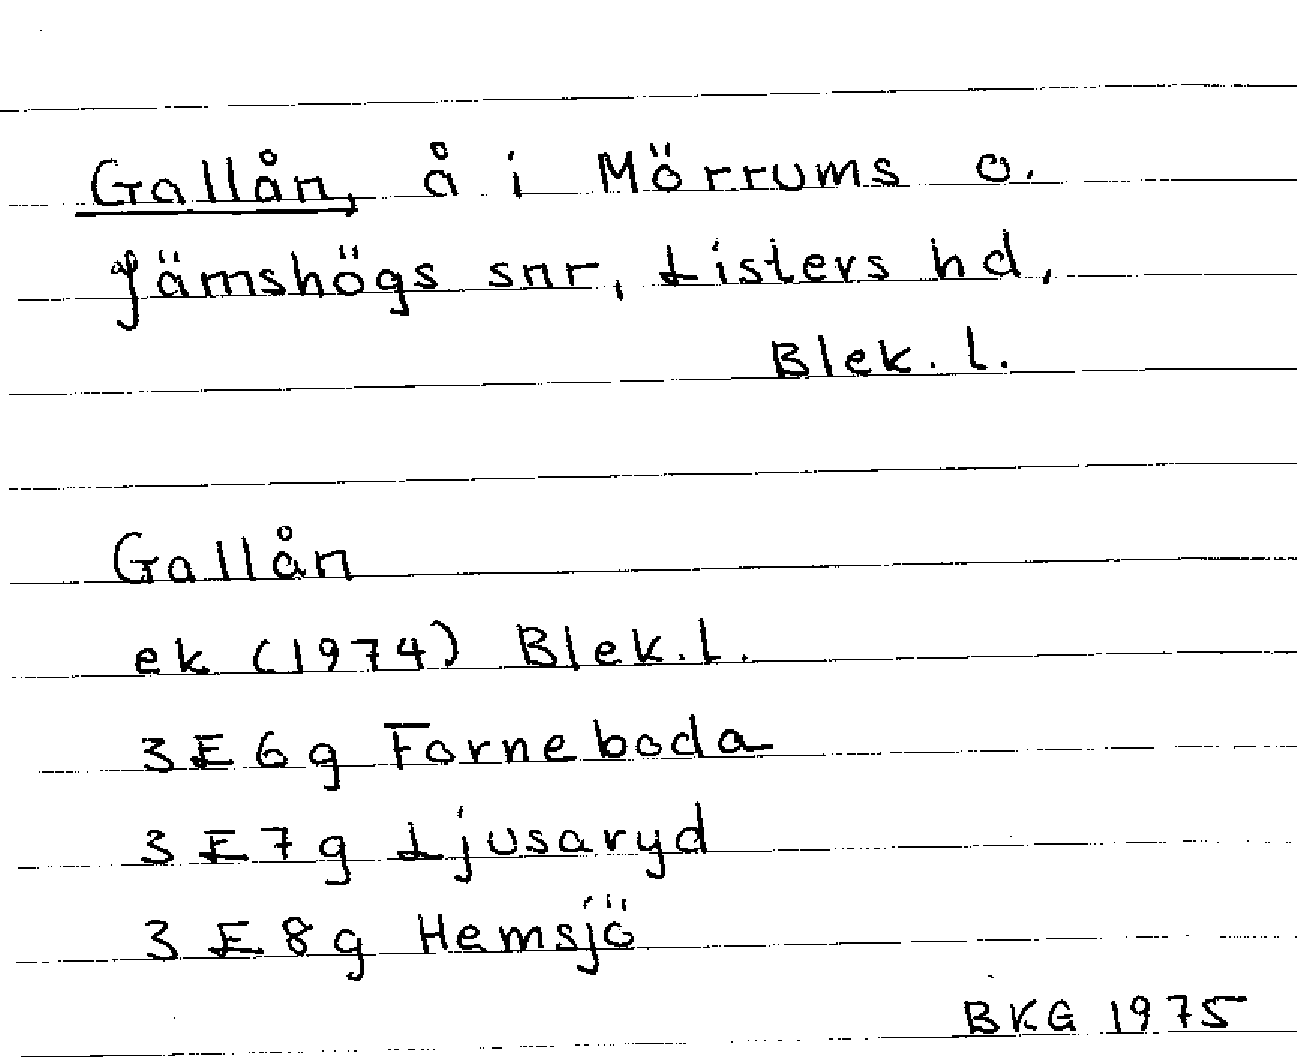 Gallån, å i Mörrums o.
Jämshögs snr, Listers hd,
Blek. l.
Gallån
ek (1974) Blek. l.
3E6g Forneboda
3E7g Ljusaryd
3E8g Hemsjö
BKG 1975